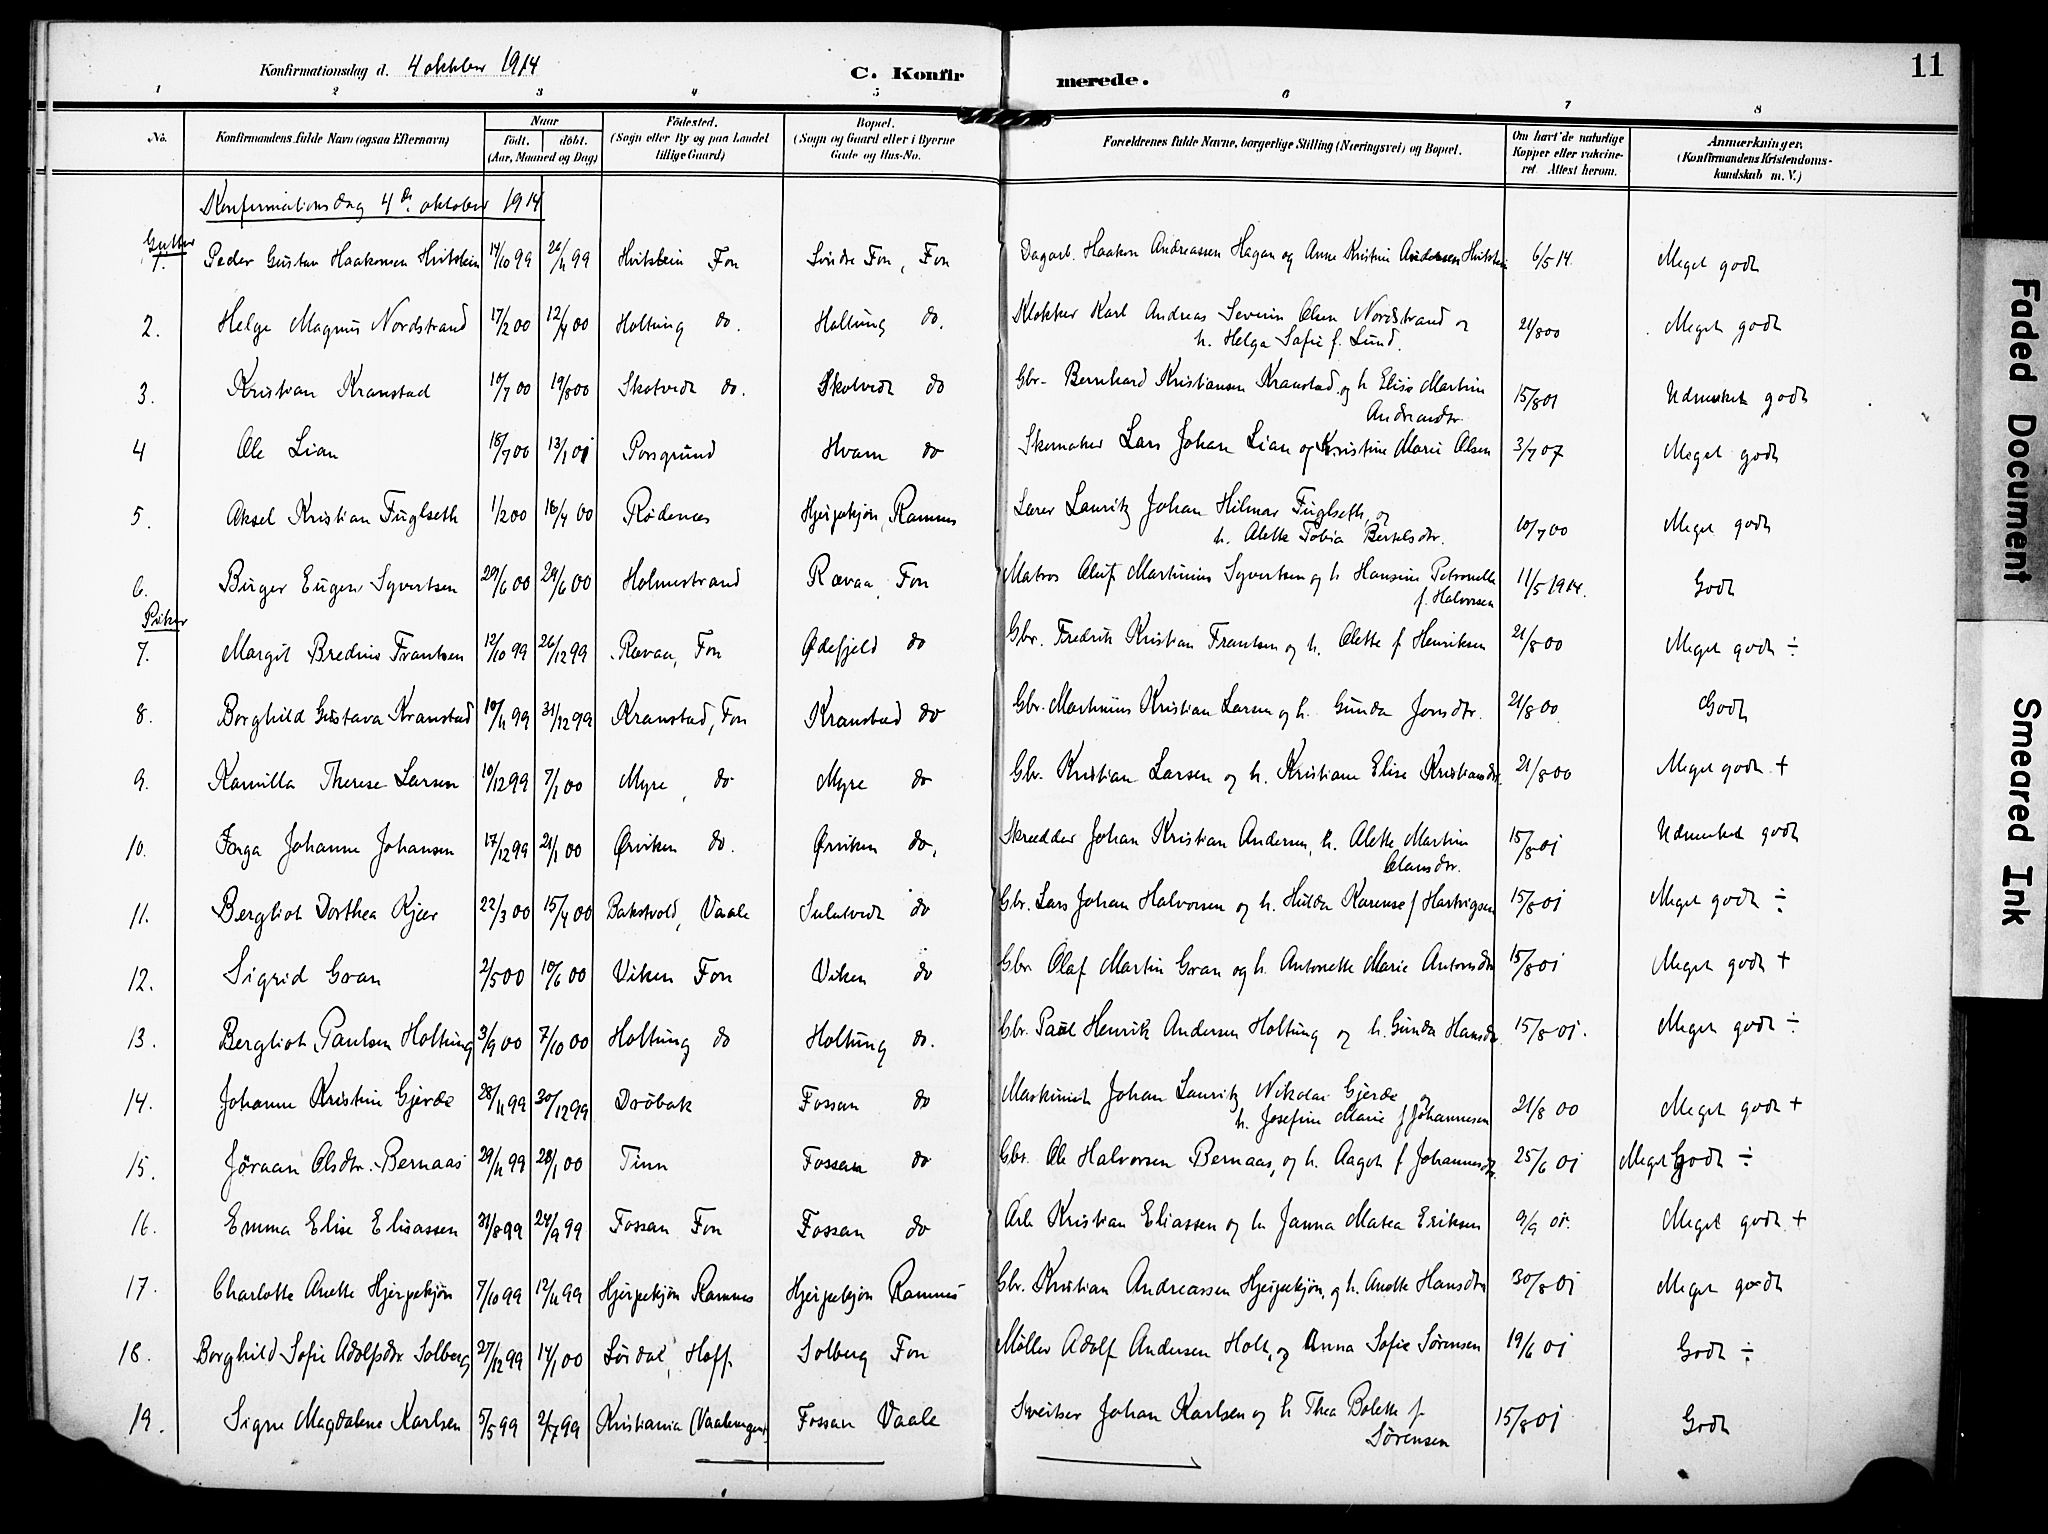 Konfirmationsdag d. 4 oktober 1914 C. Konfir merede. 11
1 2 3 4 5 6 7 8
No. Konfirmandens fulde Navn (ogsaa Efternavn) Naar født. døbt. (Aar, Maaned og Dag) Fødested. (Sogn eller By og paa Landet tillige Gaard) Bopæl. (Sogn og Gaard eller i Byerne Gade og Hus-No. Forældrenes fulde Navne, borgerlige Stilling (Næringsvei) og Bopæl. Om havt de naturlige Kopper eller vakcineret. Attest herom. Anmærkninger. (Konfirmandens Kristendomskundskab m. V.)
Konfirmationsdag 4de oktober 1914
Gutter
1. Peder Gustav Haakonsen Hvitstein 14/10 99 26/11 99 Hvitstein Fon Søndre Fon, Fon Dagarb. Haakon Andreassen Hagan og Anne Kristine Andersen Hvitstein 6/5 14. Meget godt
2. Helge Magnus Nordstrand 17/2 00 12/4 00 Holtung do. Holtung do. Klokker Karl Andreas Severin Olsen Nordstrand og
h. Helga Sofie f. Lund. 21/8 00 Meget godt
3. Kristian Kranstad 10/7 00 19/8 00 Skotvedt do. Skotvedt do Gbr. Bernhard Kristiansen Kranstad og h. Elise Martine
Andreasdtr. 15/8 01 Udmerket godt
4 Ole Lian 18/7 00 13/1 01 Porsgrund Hvam do Skomaker Lars Johan Lian og Kristine Marie Olsen 3/7 07 Meget godt
5. Aksel Kristian Fuglseth 1/2 00 16/4 00 Rødenes Hjerpekjøn, Ramnes Lærer Lauritz Johan Hilmar Fuglseth, og
h. Alette Tobia Bertelsdtr. 10/7 00 Meget godt
6. Birger Eugen Syvertsen 29/6 00 29/6 00 Holmestrand Rævaa, Fon Matros Oluf Martinius Syvertsen og h. Hansine Petronelle
f. Halvorsen 11/5 1914. Godt
Piker
7. Margit Bredine Frantsen 12/10 99 26/12 99 Rævaa, Fon Ødefjeld do Gbr. Fredrik Kristian Frantsen og h. Alette f Henriksen 21/8 00 Meget godt ÷
8. Borghild Gustava Kranstad 10/11 99 31/12 99 Kranstad, Fon Kranstad do Gbr. Martinius Kristian Larsen og h. Gunda Jonsdtr. 21/8 00. Godt
9. Kamilla Therese Larsen 10/12 99 7/1 00 Myre, do Myre do Gbr. Kristian Larsen og h. Kristiane Elise Kristiansdtr. 21/8 00 Meget godt +
10. Inga Johanne Johansen 17/12 99 21/1 00 Ørviken do. Ørviken do. Skrædder Johan Kristian Andersen, h. Alette Martine
Olausdtr. 15/8 01 Udmerket godt
11. Bergliot Dorthea Kjær 22/3 00 15/4 00 Bakstvold, Vaale Sulutvedt do Gbr. Lars Johan Halvorsen og h. Hulda Karense f Hartvigsen 15/8 01 Meget godt ÷
12. Sigrid Gran 2/5 00 10/6 00 Viken Fon Viken do Gbr. Olaf Martin Gran og h. Antonette Marie Antonsdtr 15/8 01 Meget godt +
13. Bergliot Paulsen Holtung 3/9 00 7/10 00 Holtung do Holtung do. Gbr. Paul Henrik Andersen Holtung og h. Gunda Hansdtr. 15/8 01. Meget godt ÷
14. Johanne Kristine Gjerde 28/11 99 30/12 99 Drøbak Fossan do Maskinist Johan Lauritz Nikolai Gjerde og
h. Josefine Marie f Johannesen 21/8 00 Meget godt +
15. Jøraan Olsdtr. Bernaas 29/11 99 28/1 00 Tinn Fossan do Gbr. Ole Halvorsen Bernaas, og h. Aagot f Johannesdtr. 25/6 01 Meget godt ÷
16. Emma Elise Eliassen 31/8 99 24/9 99 Fossan Fon Fossan do Arb Kristian Eliassen og h Janna Matea Eriksen 9/9 01. Meget godt +
17. Charlotte Anette Hjerpekjøn 7/10 99 12/11 99 Hjerpekjøn Ramnes Hjerpekjøn Ramnes Gbr. Kristian Andreassen Hjerpekjøn, og h. Anette Hansdtr 30/8 01 Meget godt
18. Borghild Sofie Adolfsdtr Solberg 27/12 99 14/1 00 Sørdal, Hoff Solberg Fon Møller Adolf Andersen Holt, og Anna Sofie Sørensen 19/6 01 Godt ÷
19. Signe Magdalene Karlsen 5/5 99 2/7 99 Kristiania (Vaalerengen) Fossan Vaale Sveitser Johan Karlsen og h Thea Bolette f
Sørensen 15/8 01 Godt
Faded Document
Smeared Ink